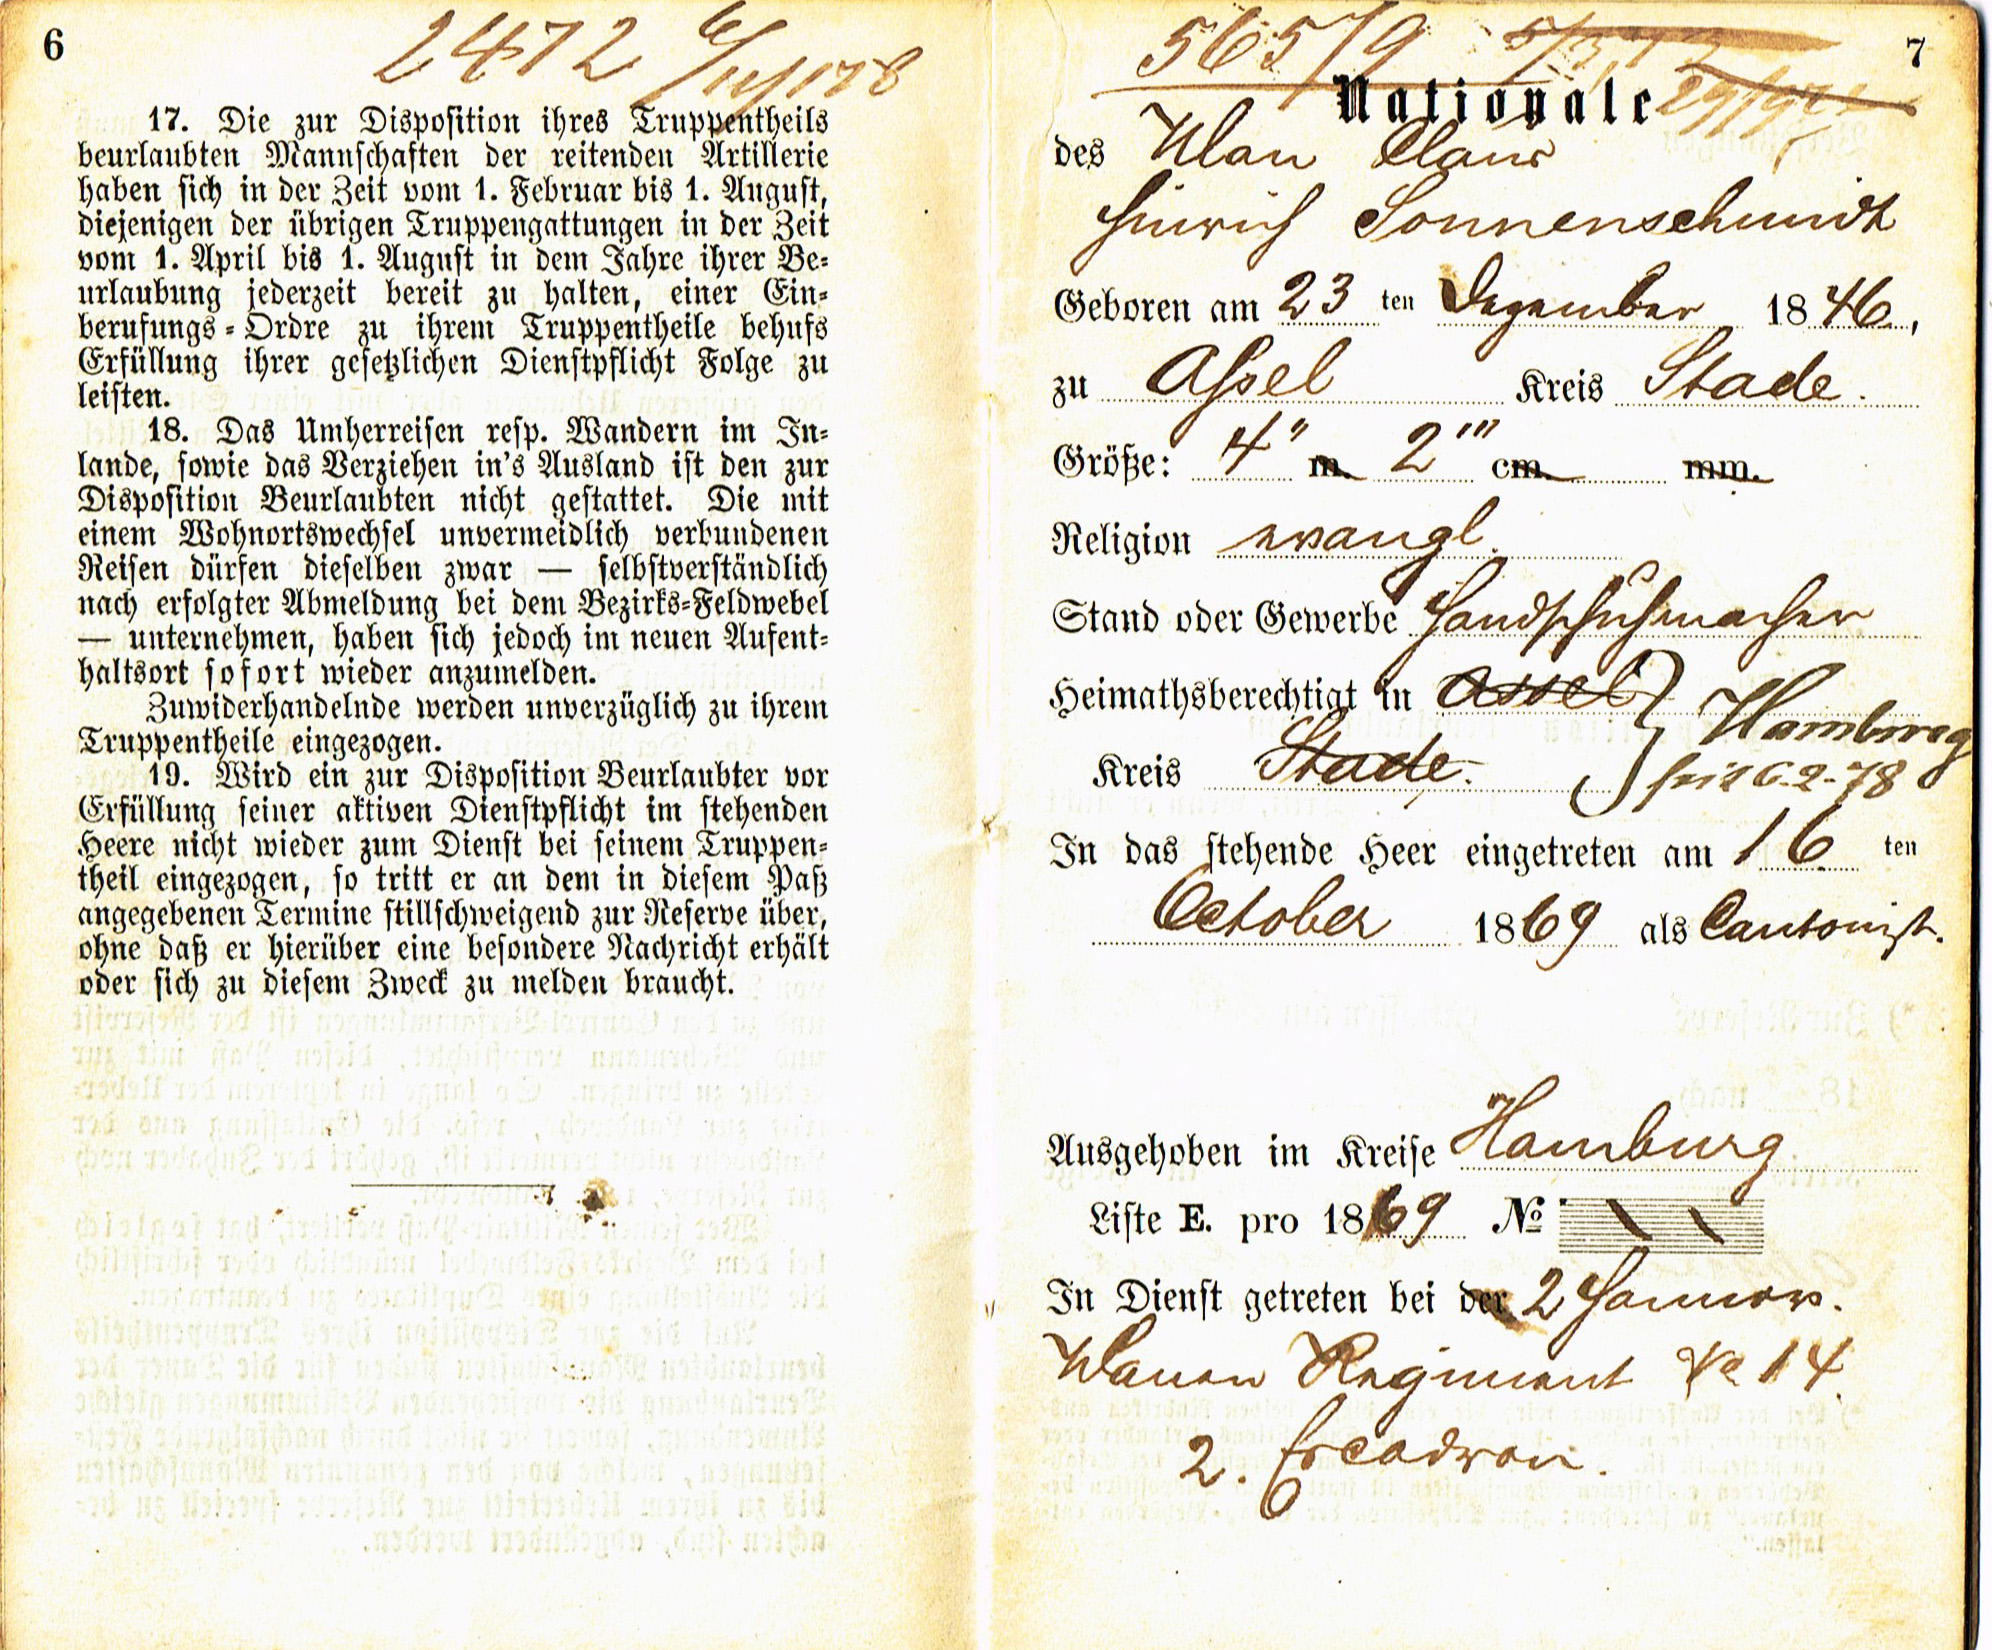 6
2472 6/11/178
17. Die zur Disposition ihres Truppentheils
beurlaubten Mannschaften der reitenden Artillerie
haben sich in der Zeit vom 1. Februar bis 1. August,
diejenigen der übrigen Truppengattungen in der Zeit
vom 1. April bis 1. August in dem Jahre ihrer Be-
urlaubung jederzeit bereit zu halten, einer Ein-
berufungs-Ordre zu ihrem Truppentheile behufs
Erfüllung ihrer gesetzlichen Dienstpflicht Folge zu
leisten.
18. Das Umherreisen resp. Wandern im In-
lande, sowie das Verziehen in's Ausland ist den zur
Disposition Beurlaubten nicht gestattet. Die mit
einem Wohnortswechsel unvermeidlich verbundenen
Reisen dürfen dieselben zwar — selbstverständlich
nach erfolgter Abmeldung bei dem Bezirks-Feldwebel
— unternehmen, haben sich jedoch im neuen Aufent-
haltsort sofort wieder anzumelden.
Zuwiderhandelnde werden unverzüglich zu ihrem
Truppentheile eingezogen.
19. Wird ein zur Disposition Beurlaubter vor
Erfüllung seiner aktiven Dienstpflicht im stehenden
Heere nicht wieder zum Dienst bei seinem Truppen-
theil eingezogen, so tritt er an dem in diesem Paß
angegebenen Termine stillschweigend zur Reserve über,
ohne daß er hierüber eine besondere Nachricht erhält
oder sich zu diesem Zweck zu melden braucht.
7
565/9
Nationale
des Ulan Claus
Hinrich Sonnenschmidt
Geboren am 23 ten Dezember 1846,
zu Assel Kreis Stade.
Größe: 4" m. 2''' cm. mm.
Religion evangl.
Stand oder Gewerbe Handschuhmacher
Heimathsberechtigt in Assel } Hamburg
Kreis Stade. seit 6.2.78
In das stehende Heer eingetreten am 16 ten
October 1869 als Cantonist.
Ausgehoben im Kreise Hamburg
Liste E. pro 1869 No
In Dienst getreten bei der 2 Hannov.
Ulanen Regiment No 14.
2. Escadron.